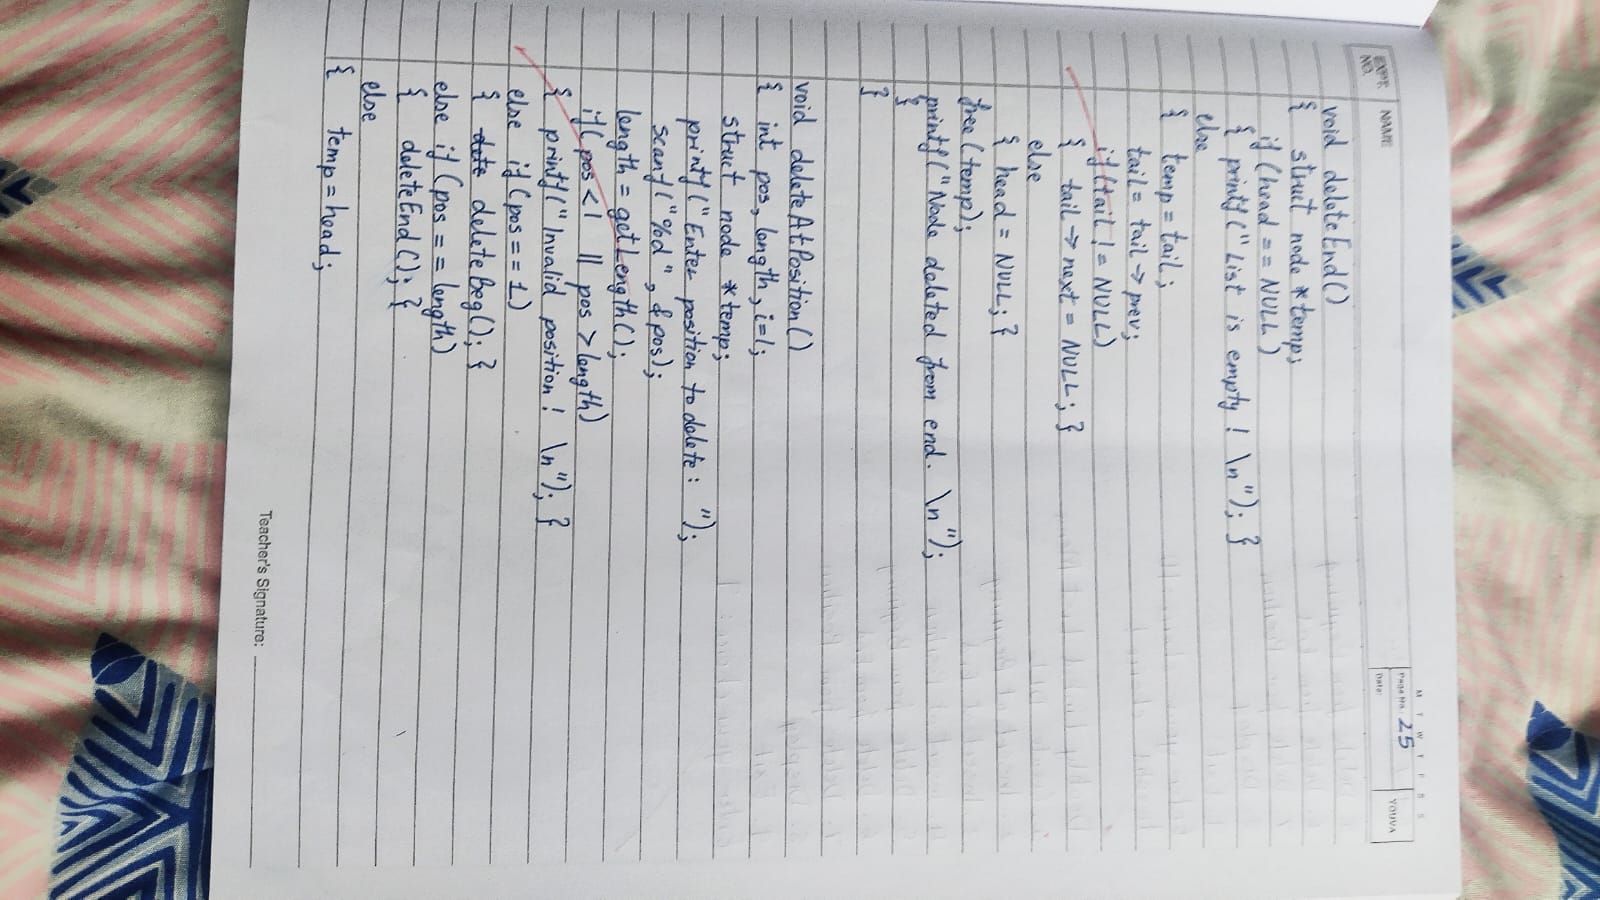 M T W T F S S
Page No. 25
YOUVA
Date:
EXPT. NO.
NAME
void deleteEnd()
{ struct node *temp;
if (head == NULL)
{ printf("List is empty! \n"); }
else
{ temp = tail;
tail = tail->prev;
if(tail != NULL)
{ tail->next = NULL; }
else
{ head = NULL; }
free(temp);
printf("Node deleted from end. \n");
}
}
void deleteAtPosition()
{ int pos, length, i=1;
struct node *temp;
printf("Enter position to delete: ");
scanf("%d", &pos);
length = getLength();
if( pos <1 || pos > length)
{ printf("Invalid position! \n"); }
else if (pos == 1)
{ deleteBeg(); }
else if (pos == length)
{ deleteEnd(); }
else
{ temp = head;
Teacher's Signature: